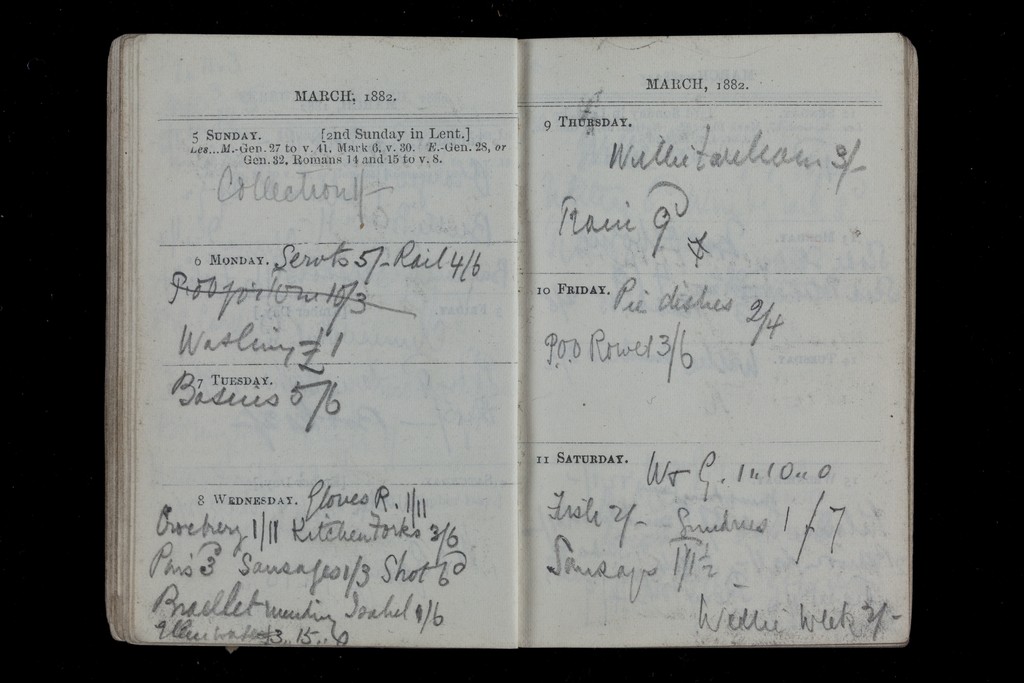 MARCH, 1882.
5 SUNDAY. [2nd Sunday in Lent.]
Les...M.-Gen. 27 to v. 41, Mark 6, v. 30. E.-Gen. 28, or
Gen. 32, Romans 14 and 15 to v. 8.
Collection 1/-
6 MONDAY. Servts 5/- Rail 4/6
P.O.O for 10/3
Washing £1
7 TUESDAY.
Basins 5/6
8 WEDNESDAY. Gloves R. 1/11
1/11 Kitchen Forks 3/6
Pins 3d Sausages 1/3 Shot 6d
Bracelet mending Isabel 1/6
£3..15..0
MARCH, 1882.
9 THURSDAY.
Willie 3/-
Train 9d
10 FRIDAY. Pie dishes 2/4
P.O.O Rowet 3/6
11 SATURDAY. W & G. 1"10"0
Fish 2/- Sundries 1/7
Sausages 1/1½
Willie Week 3/-